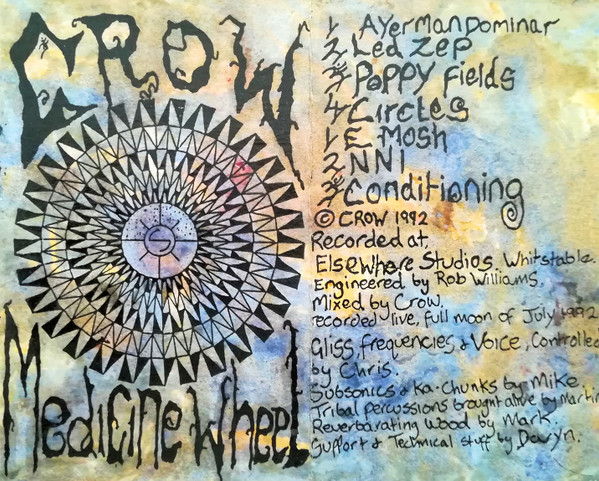 CROW
Medicine Wheel
1 Ayermandominar
2 Led Zep
3 Poppy fields
4 Circles
1 E Mosh
2 NNI
3 Conditioning
© CROW 1992
Recorded at,
Elsewhere Studios, Whitstable.
Engineered by Rob Williams.
Mixed by Crow.
recorded live, full moon of July 1992
Gliss, frequencies & Voice, Controlled
by Chris.
Subsonics & Ka-Chunks by Mike.
Tribal percussions brought alive by Martin
Reverbarating Wood by Mark.
Support & Technical stuff by Devyn.